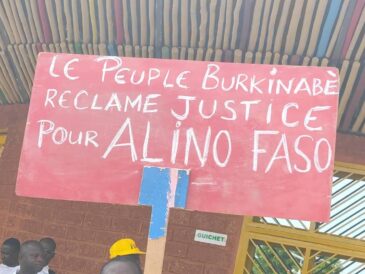 LE PEUPLE BURKINABÈ
RECLAME JUSTICE
POUR ALINO FASO
GUICHET